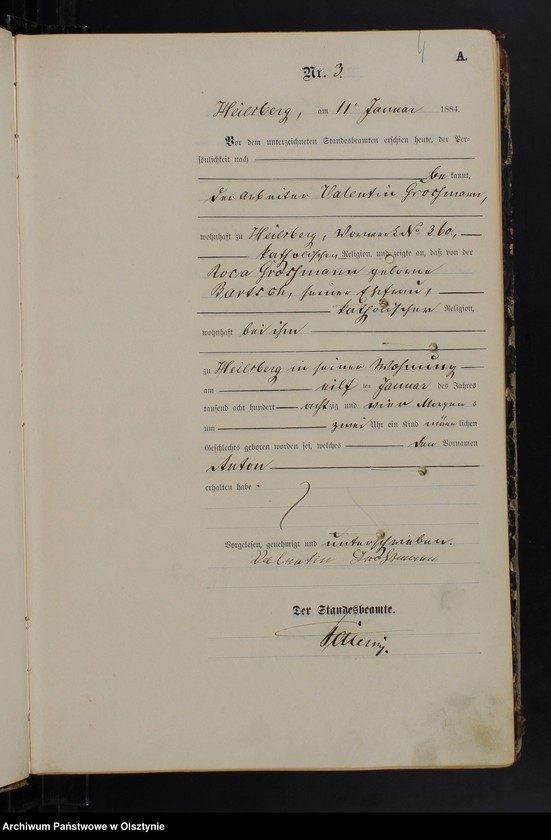 A.
Nr. 3.
Heilsberg, am 11ᵗ Januar 1884.
Vor dem unterzeichneten Standesbeamten erschien heute, der Per-
sönlichkeit nach
be kannt,
der Arbeiter Valentin Großmann,
wohnhaft zu Heilsberg, Vorwerk No 360,
katholischen Religion, und zeigte an, daß von der
Rosa Großmann geborne
Bartsch, seiner Ehefrau,
katholischer Religion,
wohnhaft bei ihm
zu Heilsberg in seiner Wohnung
am eilf ten Januar des Jahres
tausend acht hundert acht zig und vier Morgen s
um zwei Uhr ein Kind männ lichen
Geschlechts geboren worden sei, welches den Vornamen
Anton
erhalten habe.
Vorgelesen, genehmigt und unterschrieben.
Valentin Großmann
Der Standesbeamte.
Archiwum Państwowe w Olsztynie